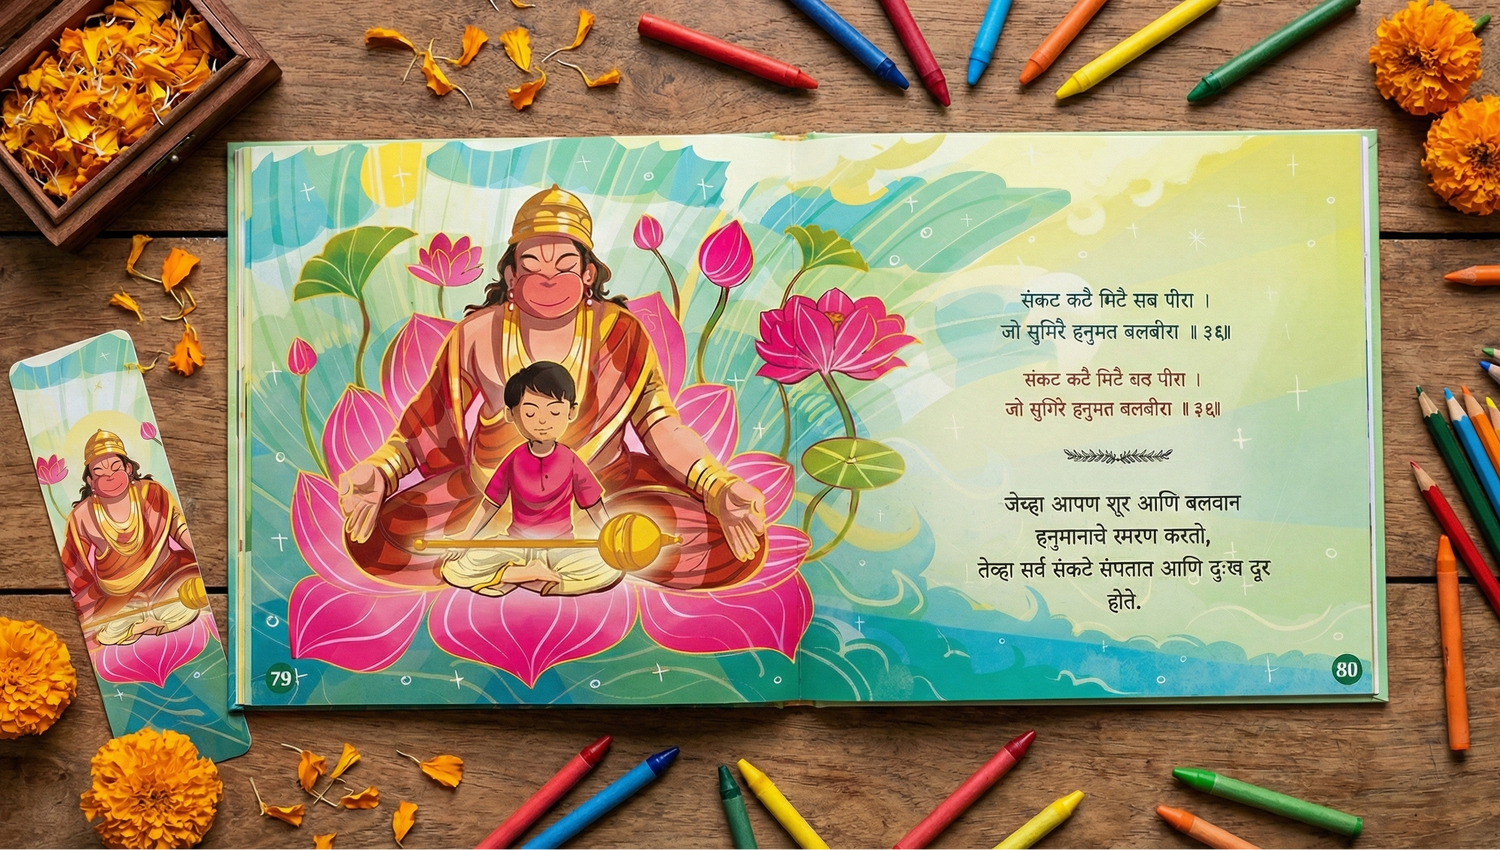 संकट कटै मिटै सब पीरा ।
जो सुमिरै हनुमत बलबीरा ॥ ३६॥
संकट कटै मिटै बड पीरा ।
जो सुगिरे हनुमत बलबीरा ॥ ३६॥
जेव्हा आपण शूर आणि बलवान
हनुमानाचे रमरण करतो,
तेव्हा सर्व संकटे संपतात आणि दुःख दूर
होते.
79
80